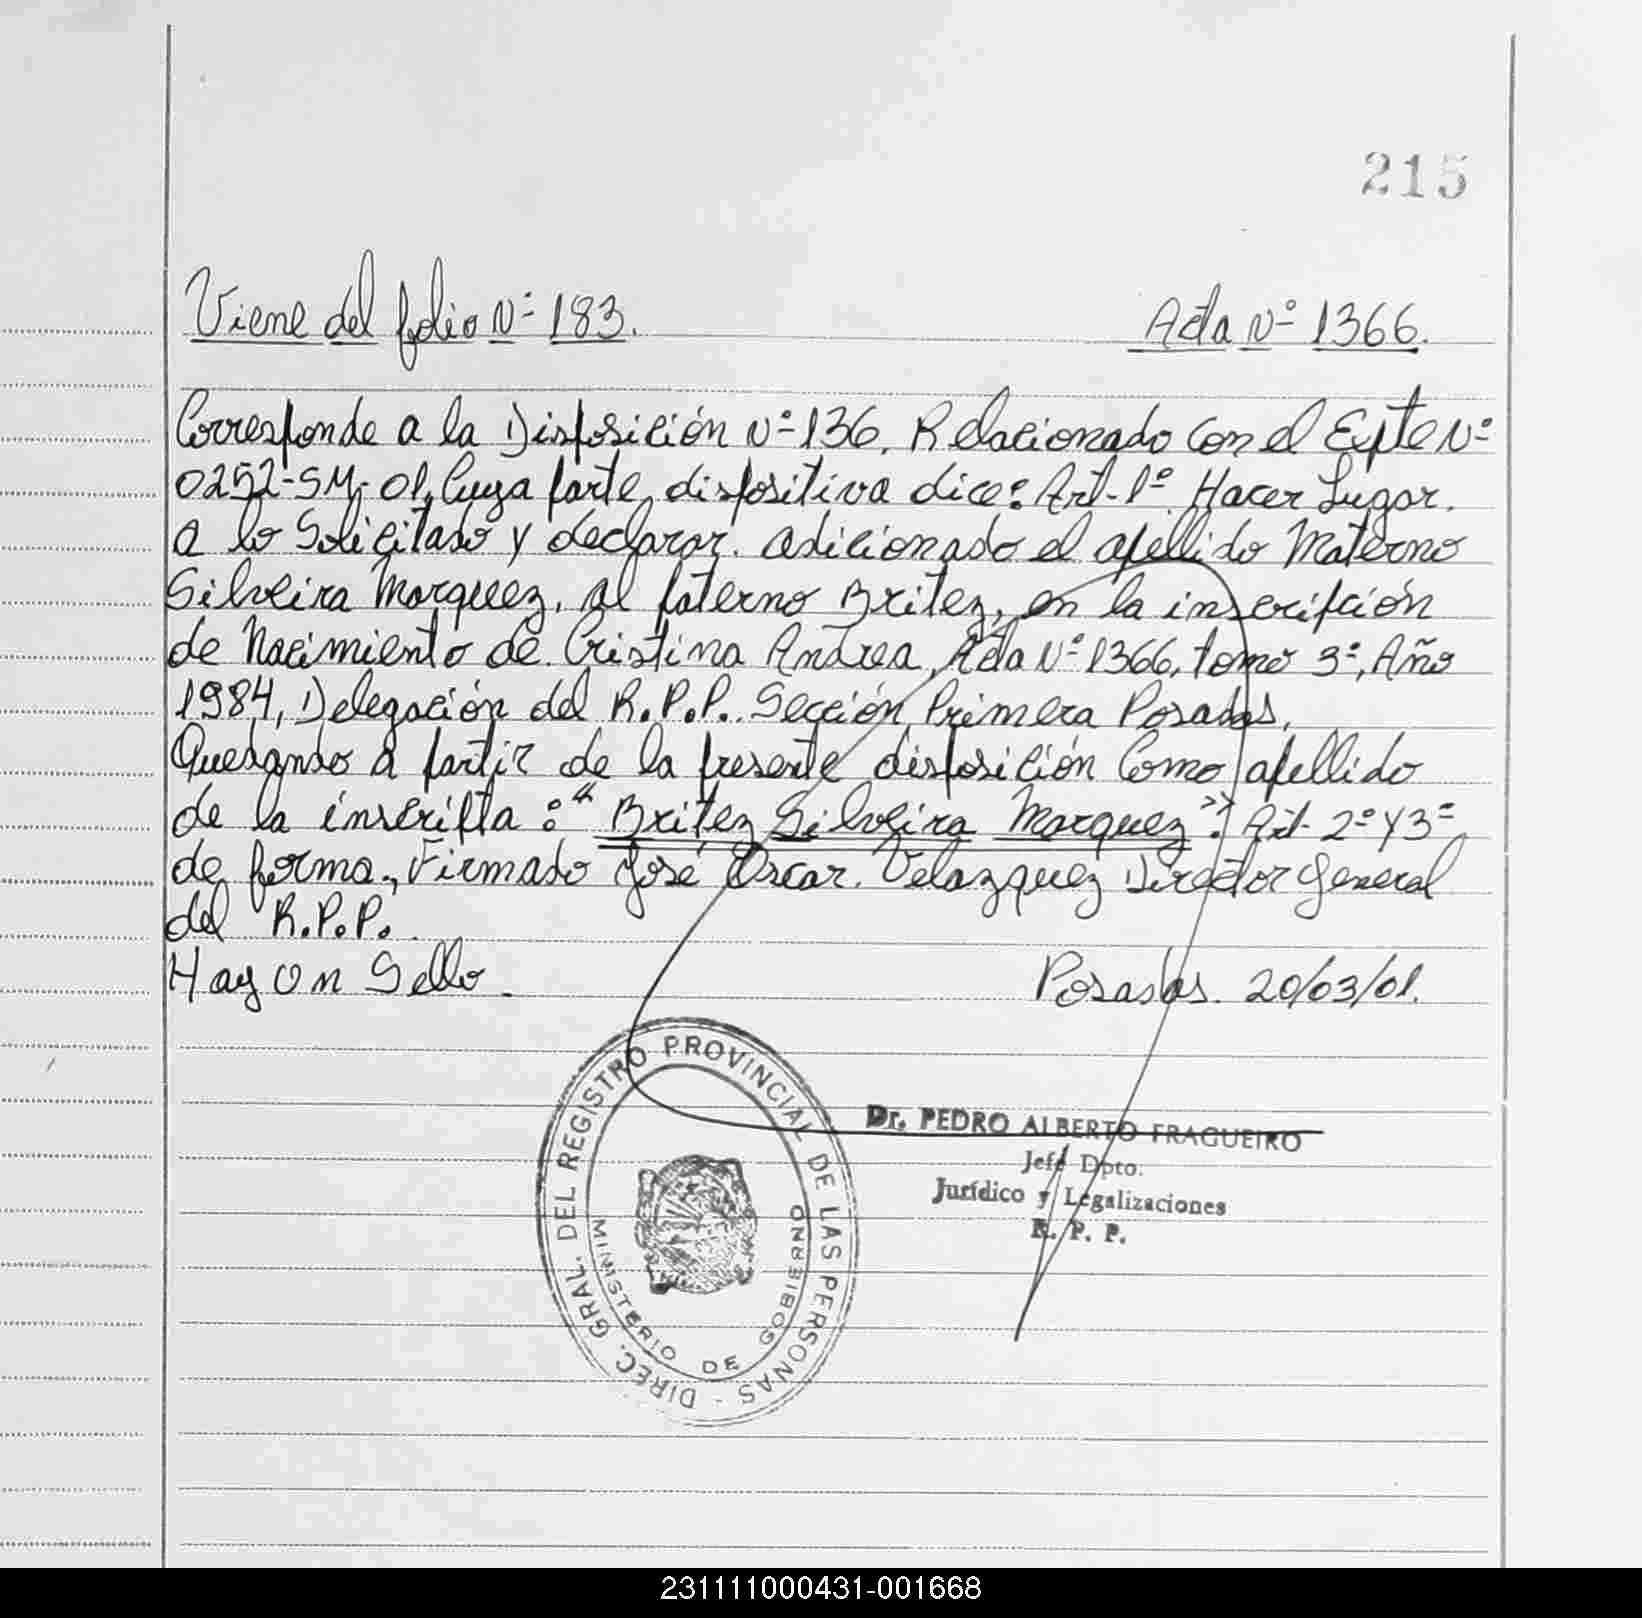 215
Viene del folio Nº 183.
Acta Nº 1366.
Corresponde a la Disposición Nº 136. Relacionado con el Expte Nº
0252-SM-01, Cuya parte dispositiva dice: Art-1º. Hacer Lugar.
a lo Solicitado y declarar. adicionado el apellido Materno
Silveira Marquez, al paterno Britez, en la inscripción
de Nacimiento de Cristina Andrea, Acta Nº 1366, tomo 3º, Año
1984, Delegación del R.P.P. Sección Primera Posadas,
Quedando a partir de la presente disposición Como apellido
de la inscripta: "Britez Silveira Marquez". Art- 2º y 3º
de forma., Firmado José Oscar. Velazquez Director General
del R.P.P.
Hay Un Sello.
Posadas. 20/03/01.
DIREC. GRAL. DEL REGISTRO PROVINCIAL DE LAS PERSONAS -
MINISTERIO DE GOBIERNO
Dr. PEDRO ALBERTO FRAGUEIRO
Jefe Dpto.
Jurídico y Legalizaciones
R. P. P.
231111000431-001668